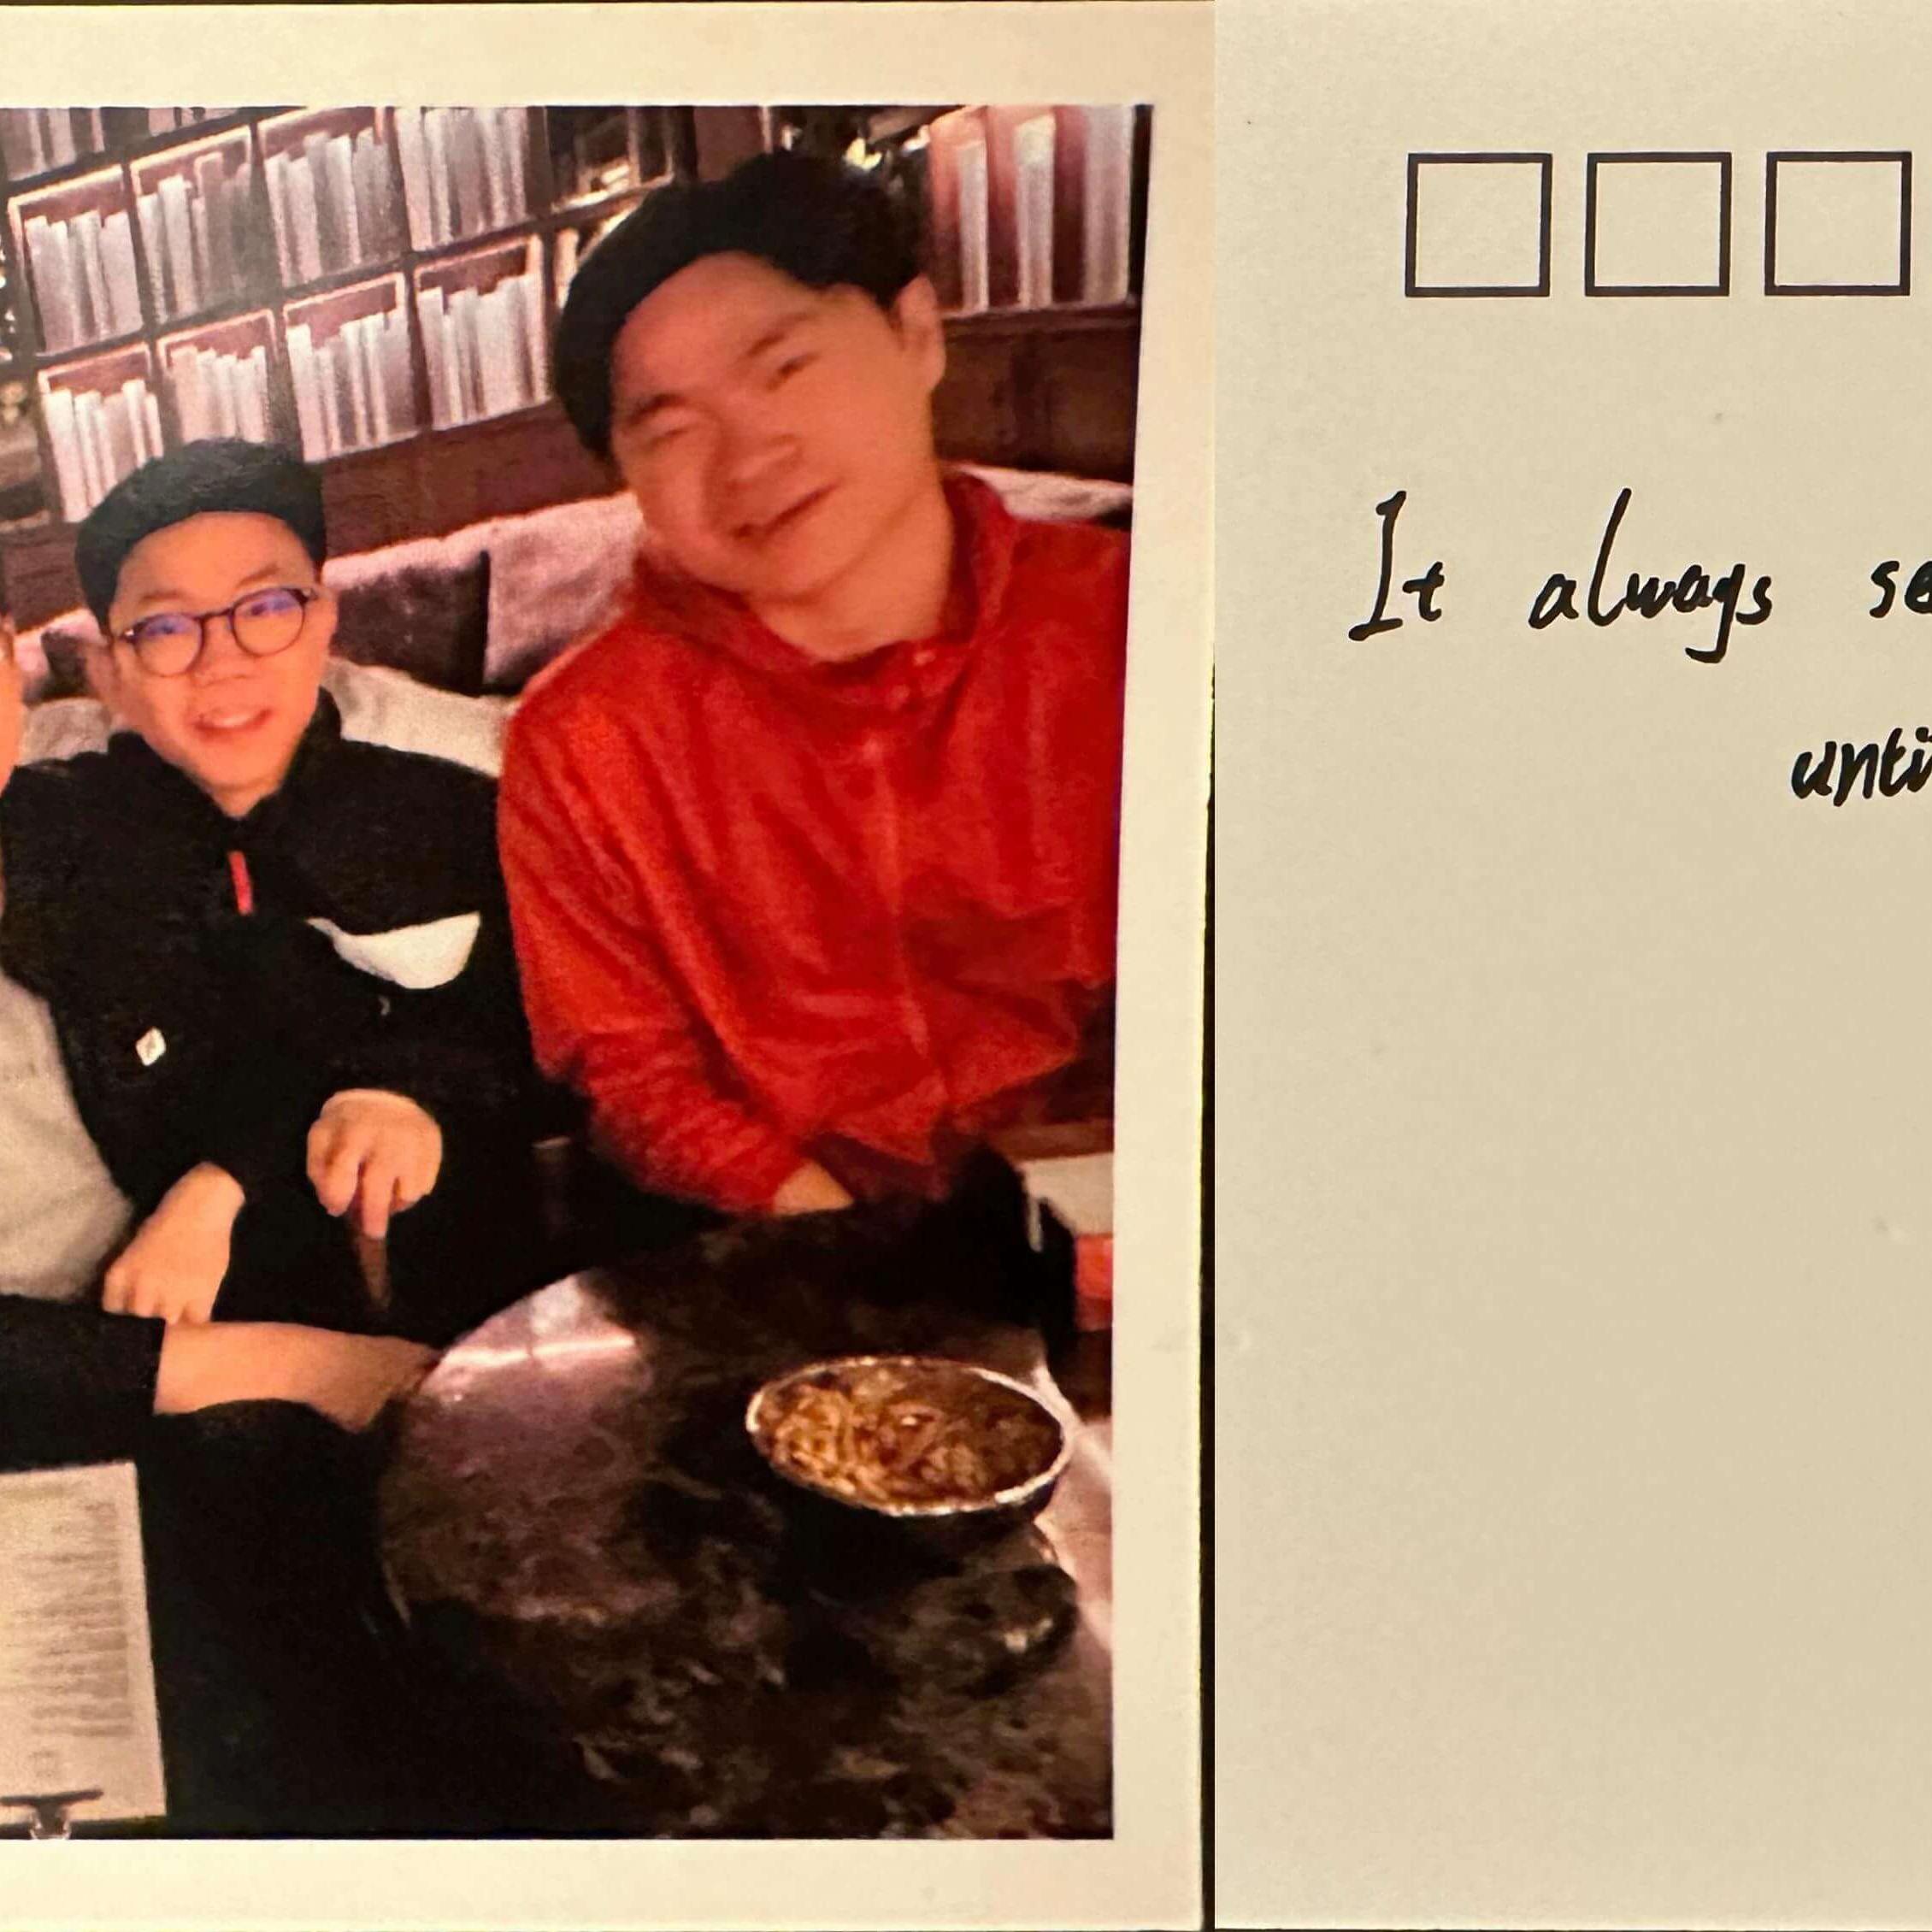 It always se
unti